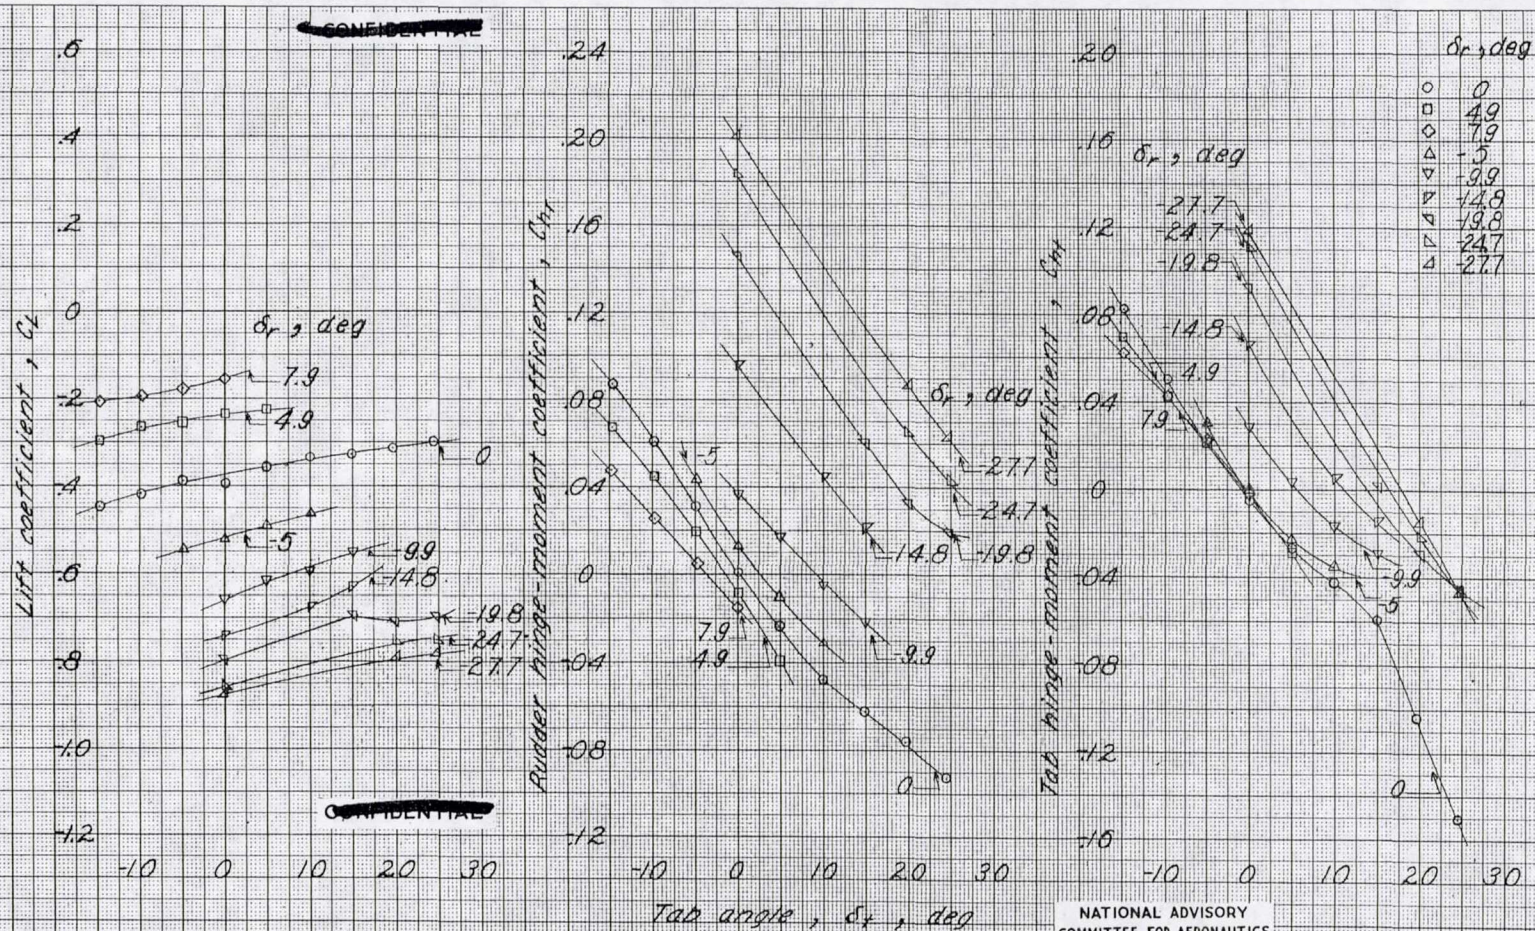 CONFIDENTIAL
.6
.4
.2
0
-.2
-.4
-.6
-.8
-1.0
-1.2
Lift coefficient , CL
δr , deg
7.9
4.9
0
-5
-9.9
-14.8
-19.8
-24.7
-27.7
-10 0 10 20 30
CONFIDENTIAL
.24
.20
.16
.12
.08
.04
0
-.04
-.08
-.12
Rudder hinge-moment coefficient , Chr
δr , deg
-5
-27.7
-24.7
-19.8
-14.8
-9.9
7.9
4.9
0
-10 0 10 20 30
Tab angle , δt , deg
.20
.16
.12
.08
.04
0
-.04
-.08
-.12
-.16
Tab hinge-moment coefficient , Cht
δr , deg
-27.7
-24.7
-19.8
-14.8
4.9
7.9
-9.9
-5
0
-10 0 10 20 30
δr , deg
0
4.9
7.9
-5
-9.9
-14.8
-19.8
-24.7
-27.7
NATIONAL ADVISORY
COMMITTEE FOR AERONAUTICS